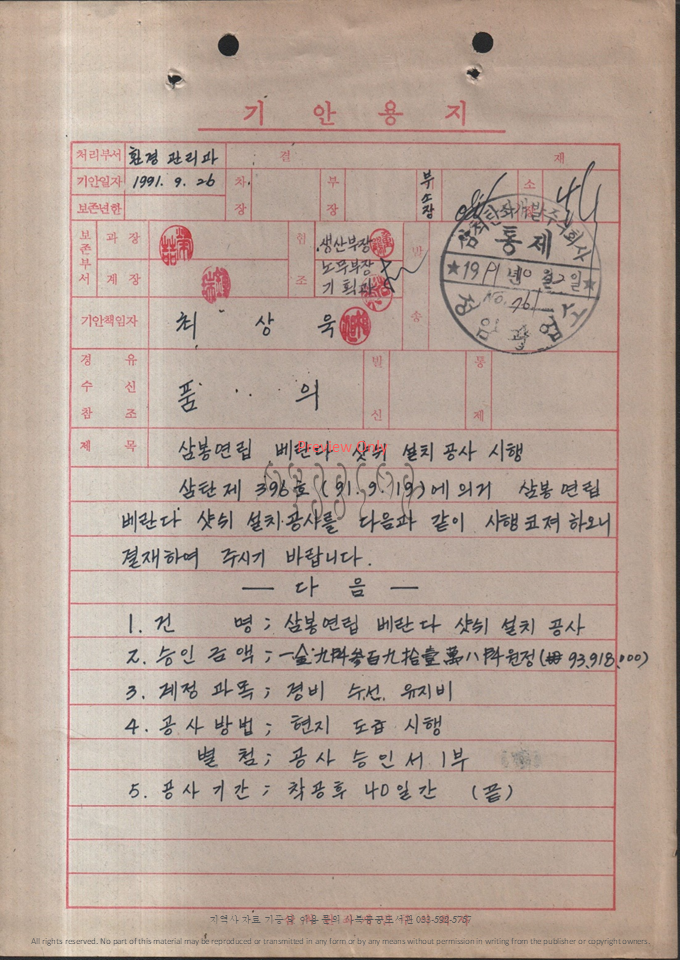 기 안 용 지
처리부서 환경 관리과 결 재
기안일자 1991. 9. 26 차장 부장 부소장 소
보존년한
보존부서 과장 협조 생산부장 발송
계장 노무부장
기획과
기안책임자 최 상 욱
삼척탄좌개발주식회사
통제
★19 91년 10월 2일★
No. 961
정암광업소
경유
수신 품 의 발신 통제
참조
제 목 삼봉연립 베란다 샷쉬 설치 공사 시행
Preview Only
삼탄 제 396호 (91. 9. 19)에 의거 삼봉 연립
베란다 샷쉬 설치 공사를 다음과 같이 시행코져 하오니
결재하여 주시기 바랍니다.
— 다 음 —
1. 건 명 ; 삼봉연립 베란다 샷쉬 설치 공사
2. 승인 금액 ; 一金九阡参百九拾壹萬八阡원정 (₩ 93,918,000)
3. 계정 과목 ; 경비 수선 유지비
4. 공사 방법 ; 현지 도급 시행
별 첨 ; 공사 승인서 1부
5. 공사 기간 ; 착공후 40일간 (끝)
All rights reserved. No part of this material may be reproduced or transmitted in any form or by any means without permission in writing from the publisher or copyright owners.